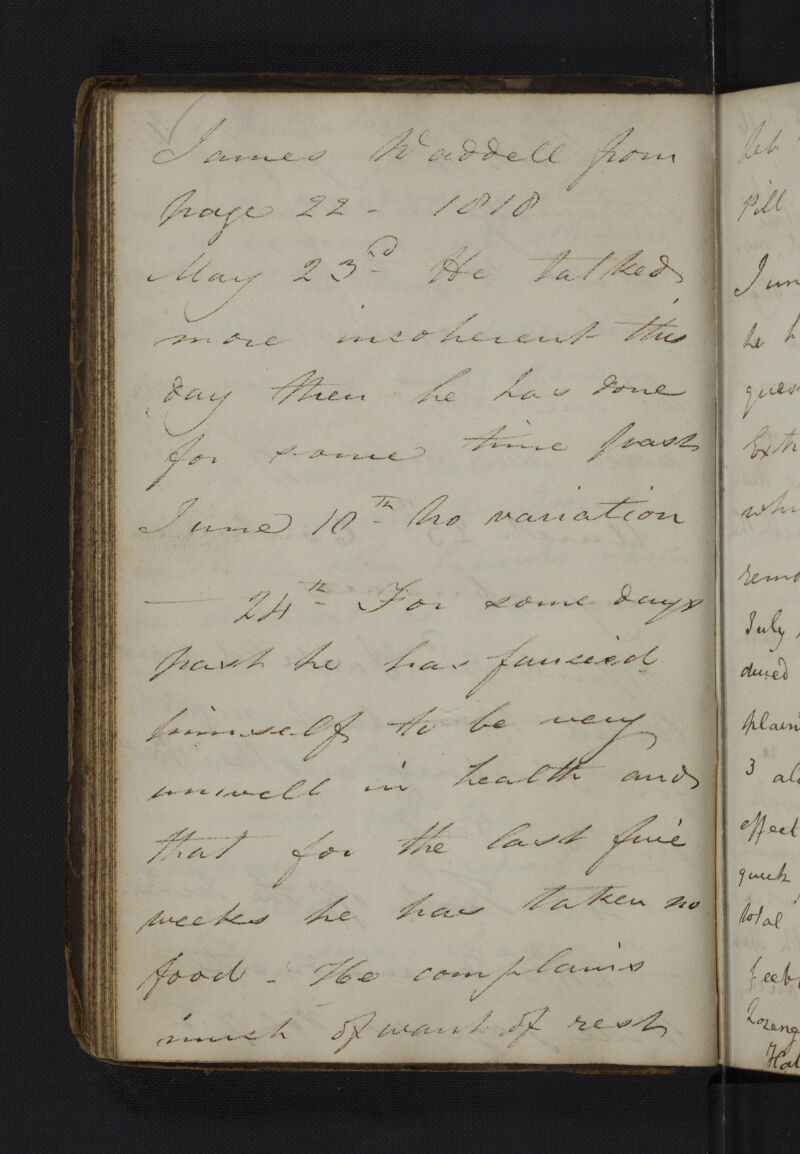 James Waddell from
page 22 - 1818
May 23rd He talked
more incoherent this
day then he has done
for some time past
June 10th No variation
— 24th For some days
past he has fancied
himself to be very
unwell in health and
that for the last five
weeks he has taken no
food - He complains
much of want of rest
Pill
he h
July
3
effect
total